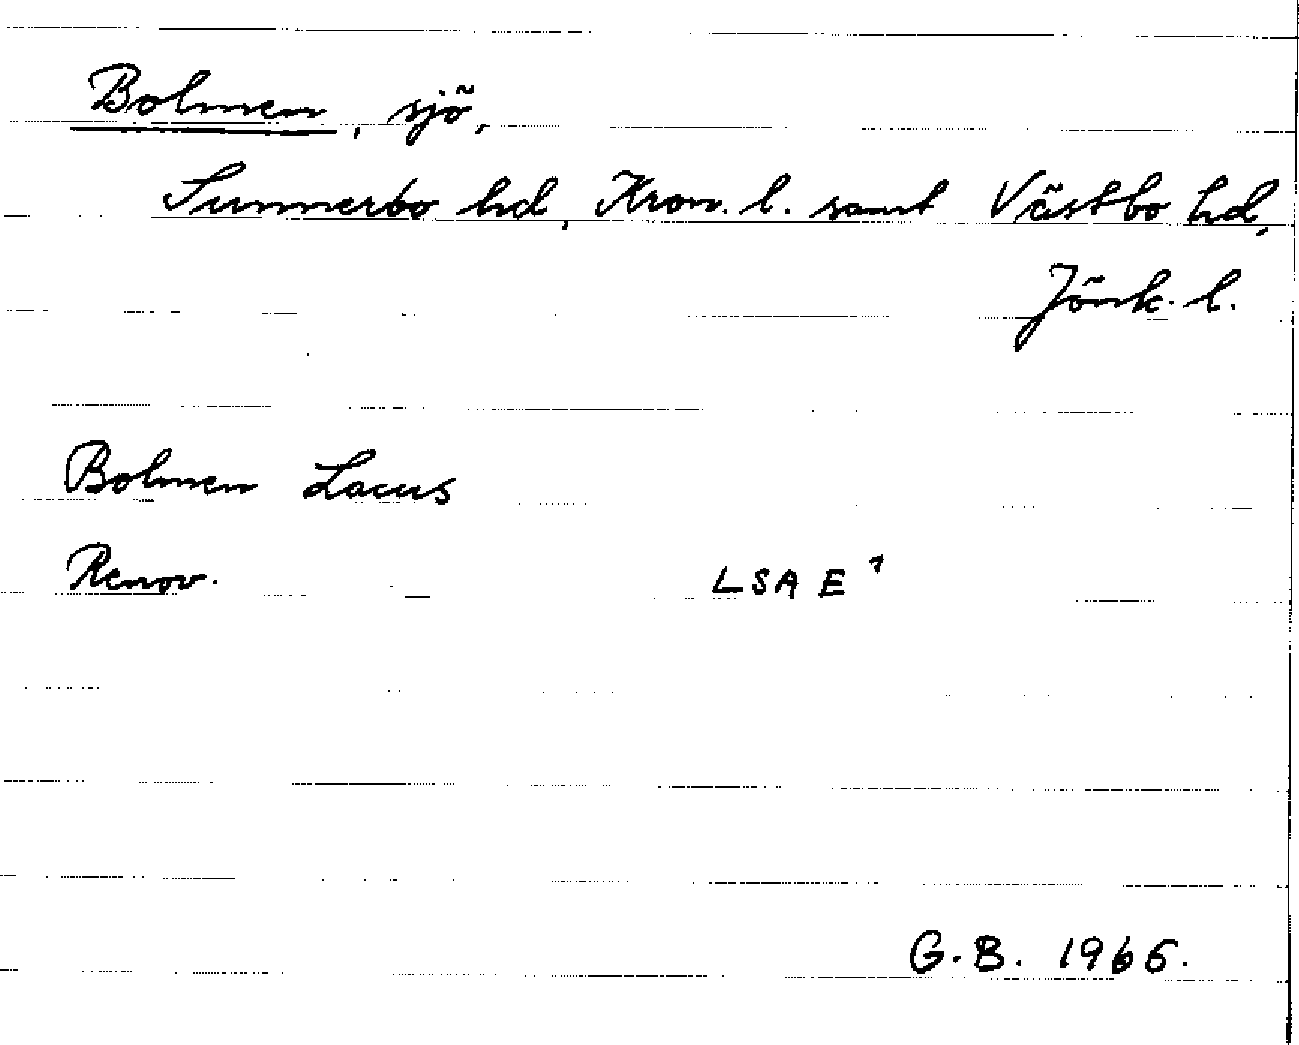 Bolmen, sjö,
Sunnerbo hd, Kron. l. samt Västbo hd,
Jönk. l.
Bolmen Lacus
Renov. LSA E¹
G.B. 1966.